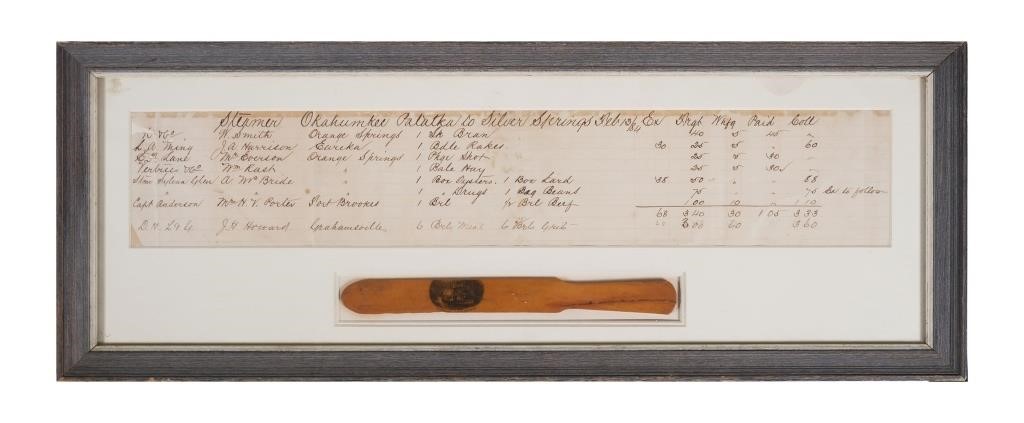 Steamer Okahumkee Palatka to Silver Springs Feb 13/84 Ex Frgt Whfg Paid Coll
" &Co W. Smith Orange Springs 1 Sk Bran 40 5 45 "
L. A. Ming J A Harrison Eureka 1 Bdle Rakes 30 25 5 " 60
Lane Mc Everson Orange Springs 1 Pkge Shot 25 5 30
&Co Wm Rast " 1 Bale Hay 25 5 30
Stmr Sylvan Glen A. McBride " 1 Box Oysters. 1 Box Lard 38 50 " " 88
" " " 1 " Drugs 1 Bag Beans 75 " " 75 Ex to follow
Capt Anderson Mrs H. V. Porter Fort Brookes 1 Brl ½ Brl Beef 1 00 10 " 1 10
68 3 40 30 1 05 3 33
J. H. Howard Grahamsville 6 Brls Meal 6 Brls Grits 60 3 60